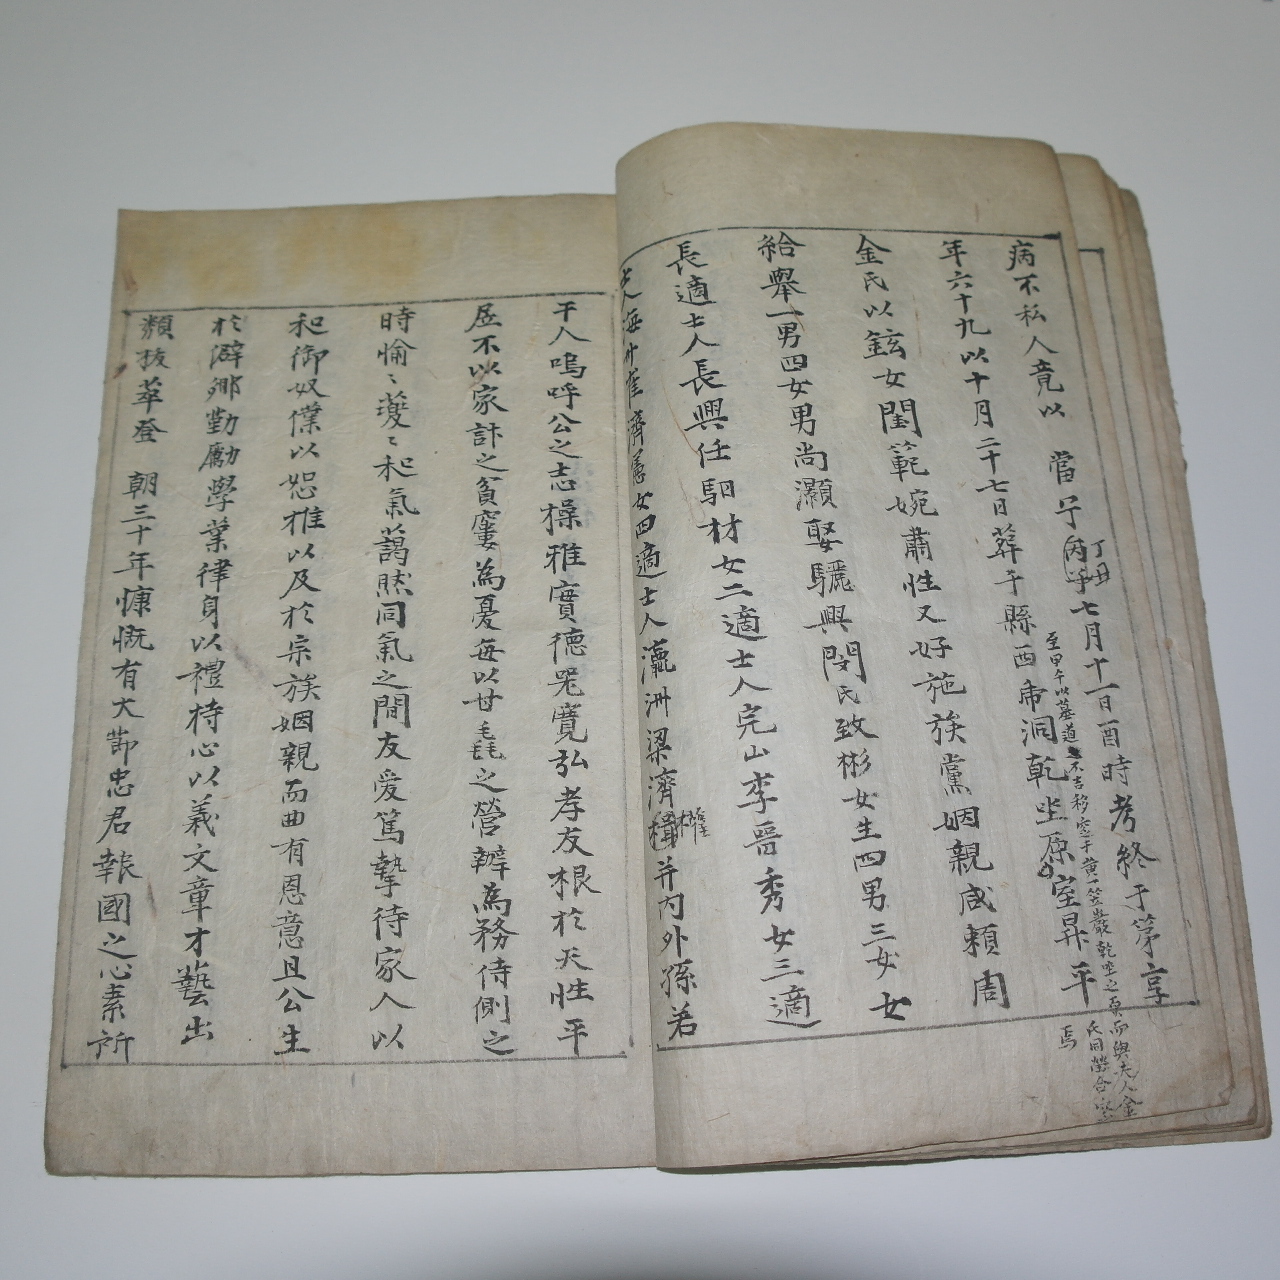 病不私人竟以　當宁丙子七月十一日酉時考終于第享
丁丑
年六十九以十月二十七日葬于縣西帝洞乾坐原室昇平
至甲午以墓道不吉移窆于黃笠巖乾坐之原而與夫人金
氏同塋合窆
焉
金氏以鉉女閨範婉肅性又好施族黨姻親咸賴周
給舉一男四女男尚灝娶驪興閔氏致彬女生四男三女女
長適士人長興任駟材女二適士人完山李晉秀女三適
士人海州崔濟憲女四適士人瀛洲梁濟楫并內外孫若
干人嗚呼公之志操雅實德器寬弘孝友根於天性平
居不以家計之貧窶為憂每以甘毳之營辦為務侍側之
時愉〻蔓〻和氣藹然同氣之間友愛篤摯待家人以
和御奴僕以恕推以及於宗族姻親而曲有恩意且公生
於僻鄉勤勵學業律身以禮持心以義文章才藝出
類拔萃登　朝三十年慷慨有大節忠君報國之心素所